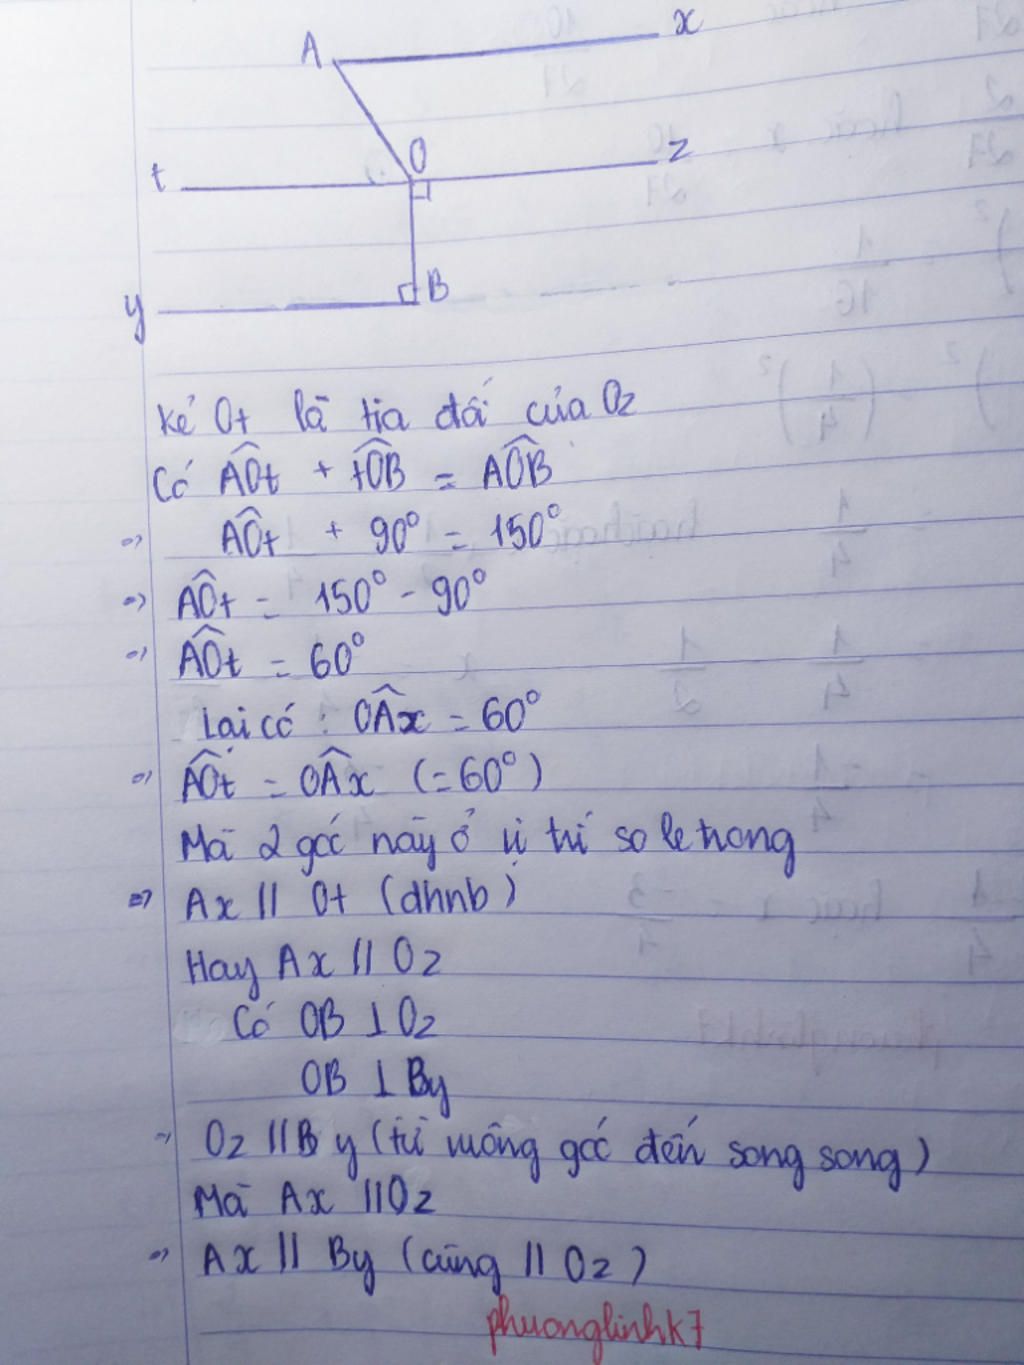 A
x
O
z
t
B
y
Kẻ Ot là tia đối của Oz
Có AÔt + tÔB = AÔB
=> AÔt + 90° = 150°
=> AÔt = 150° - 90°
=> AÔt = 60°
Lại có : OÂx = 60°
=> AÔt = OÂx (= 60°)
Mà 2 góc này ở vị trí so le trong
=> Ax // Ot (dhnb)
Hay Ax // Oz
Có OB ⊥ Oz
OB ⊥ By
=> Oz // By (từ vuông góc đến song song)
Mà Ax // Oz
=> Ax // By (cùng // Oz)
phuonglinhk7